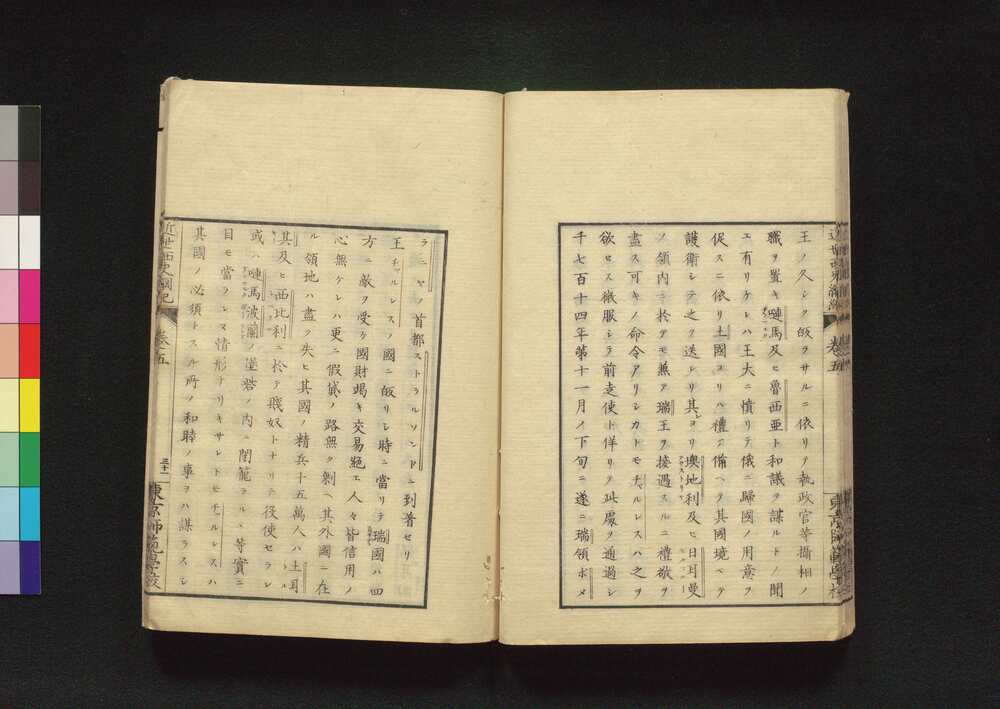 王ノ久シク皈ヲサルニ依リテ執政官等攝相ノ
職ヲ置キ嗹馬及ヒ魯西亜ト和議ヲ謀ルトノ聞
エ有リケレハ王大ニ憤リテ俄ニ歸國ノ用意ヲ
促スニ依リ土國ヨリハ禮ニ備ヘテ其國境ヘテ
護衛シテ之ヲ送レリ其レヨリ墺地利及ヒ日耳曼
ノ領内ニ於テモ兼テ瑞王ヲ接遇スルニ禮敬ヲ
盡ス可キノ命令アリシカトモチャルレスハ之ヲ
欲セス微服シテ前走使ト佯リテ此處ヲ通過シ
千七百十四年第十一月ノ下旬ニ遂ニ瑞領ポメ
近世西史綱紀 卷五
ラニヤノ首都ストラルソンドニ到着セリ
王チャルレスノ國ニ皈リシ時ニ當リテ瑞國ハ四
方ニ敵ヲ受ケ國財竭キ交易絶エ人々皆信用ノ
心無ケレハ更ニ假貸ノ路無ク剰ヘ其外國ニ在
ル領地ハ盡ク失ヒ其國ノ精兵十五萬人ハ土耳
其及ヒ西比利ニ於テ賤奴トナリテ役使セラレ
或ハ嗹馬波蘭ノ
ノ内ニ閉籠ラルヽ等實ニ
目モ當ラレヌ情形ナリキサレトモチルレスハ
其國ノ必須トスル所ノ和睦ノ事ヲハ謀ラスシ
近世西史綱紀 卷五 三十一 東京師範學校